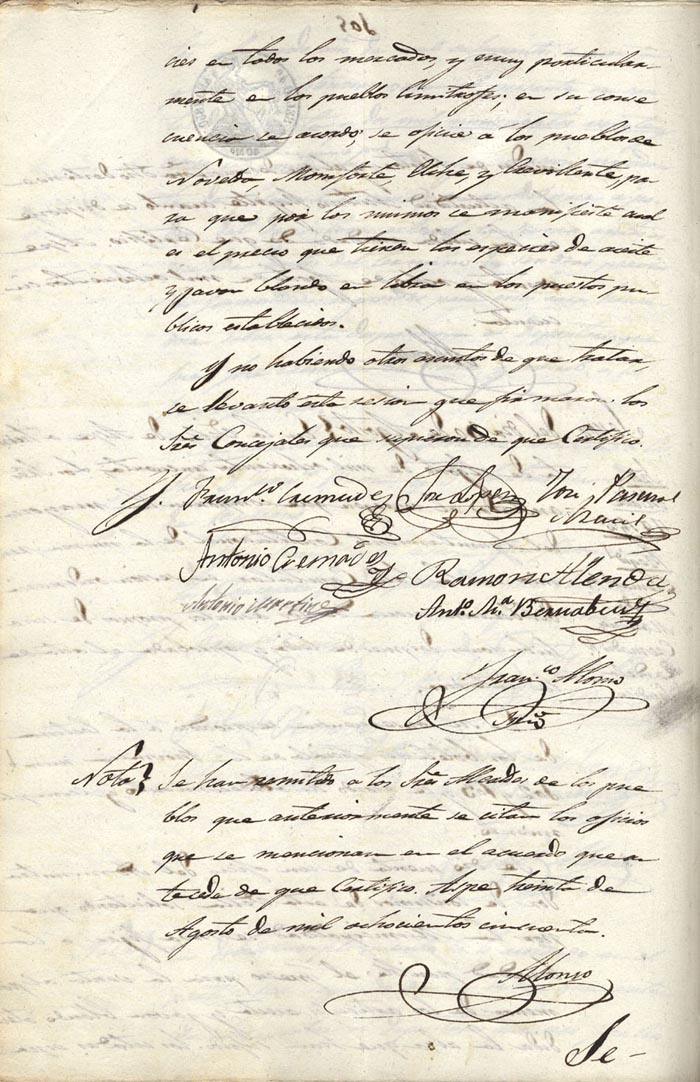 cies en todos los mercados y muy particular-
mente en los pueblos limitrofes; en su conse
cuencia se acordó, se oficie a los pueblos de
Novelda, Monforte, Elche, y Crevillente, pa
ra que por los mismos se manifieste cual
es el precio que tienen las especies de aceite
y javon blando en libra en los puestos pu
blicos establecidos.
Y no habiendo otros asuntos de que tratar,
se levantó esta sesion que firmaron los
Sres Concejales que supieron de que Certifico.
Franco Cremades José Lopez José Pascual
Antonio Cremades Ramon Alenda
Antonio Martinez Anto. Ma. Bernabeu
Franco Alonso
Srio
Nota Se han remitido a los Sres Alcaldes de los pue
blos que anteriormente se citan los oficios
que se mencionan en el acuerdo que an
tecede de que Certifico. Aspe treinta de
Agosto de mil ochocientos cincuenta.
Alonso
Se-